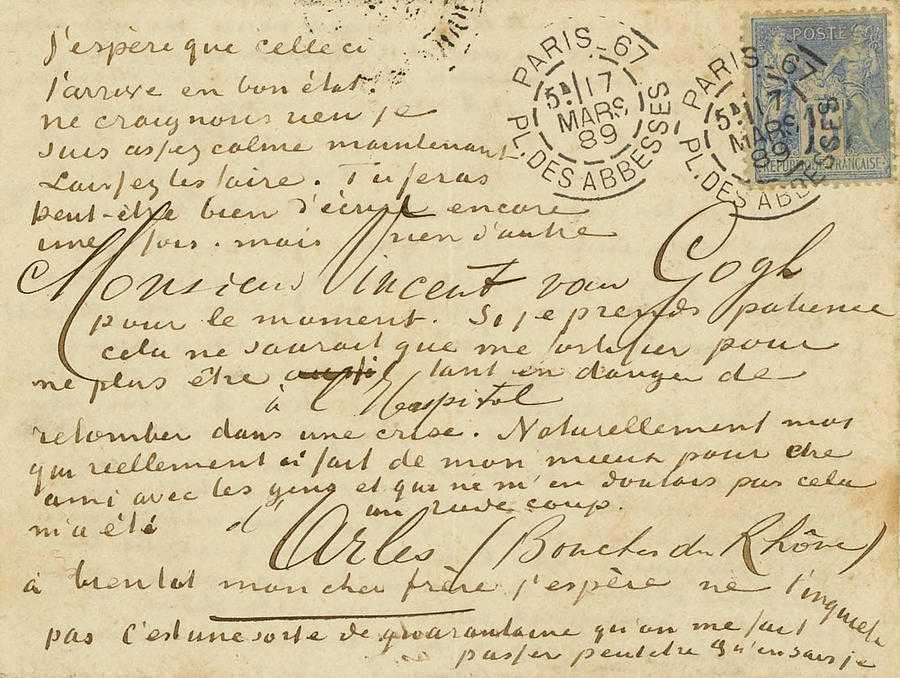 PARIS_67
5E 17
MARS
89
PL.DES ABBESSES
PARIS_67
5E 17
MARS
89
PL.DES ABBESSES
POSTE
15
REPUBLIQUE FRANÇAISE
J'espère que celle ci
t'arrive en bon état.
ne craignons rien je
suis assez calme maintenant.
Laissez les faire. Tu feras
peut-être bien d'écrire encore
une fois. mais rien d'autre
Monsieur Vincent van Gogh
pour le moment. Si je prends patience
cela ne saurait que me fortifier pour
ne plus être tant en danger de
à l'Hospital
retomber dans une crise. Naturellement moi
qui reellement ai fait de mon mieux pour etre
ami avec les gens et qui ne m'en doutais pas cela
m'a été un rude coup.
d'Arles (Bouches du Rhône)
à bientot mon cher frère j'espère ne t'inquiete
pas c'est une sorte de quarantaine qu'on me fait
passer peutetre qu'en sais je